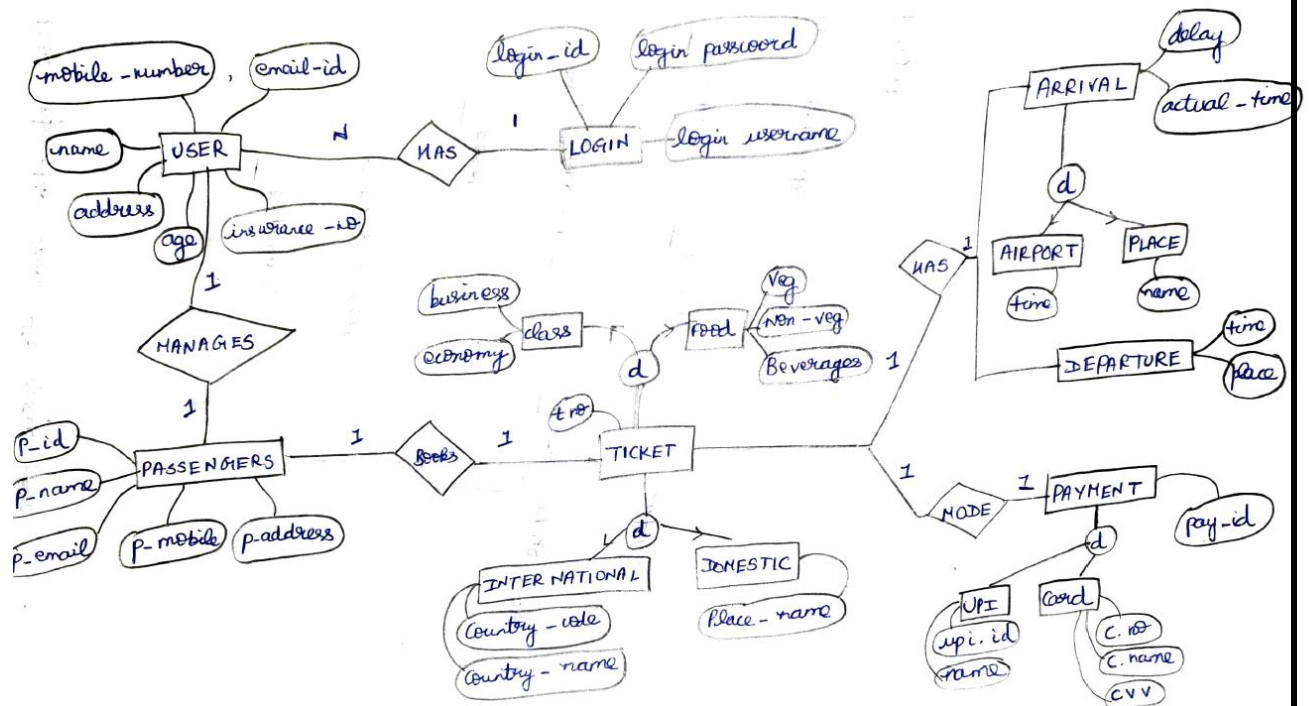 mobile-number, email-id
name
USER
address
age
insurance-no
N
HAS
1
login-id
login password
LOGIN
login username
1
MANAGES
1
P-id
P-name
P-email
PASSENGERS
p-mobile
p-address
1
Books
1
t no
TICKET
d
class
business
economy
FOOD
Veg
Non-veg
Beverages
d
INTERNATIONAL
Country-code
Country-name
DOMESTIC
Place-name
1
HAS
1
ARRIVAL
delay
actual-time
d
AIRPORT
time
PLACE
name
DEPARTURE
time
place
1
MODE
1
PAYMENT
pay-id
d
UPI
upi.id
name
Card
C.no
C.name
CVV